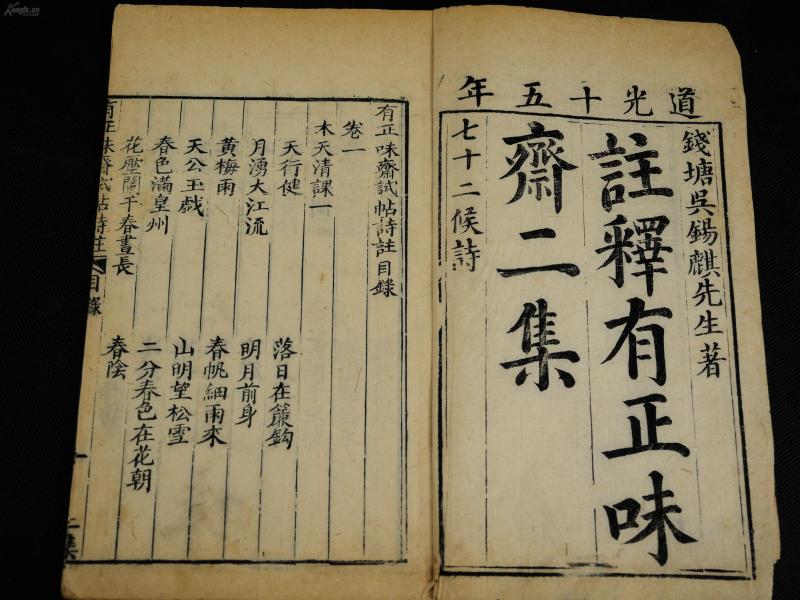 道光十五年
錢塘吳錫麒先生著
註釋有正味
齋二集
七十二候詩
有正味齋試帖詩註目錄
卷一
木天清課一
天行健
落日在簾鈎
月湧大江流
明月前身
黃梅雨
春帆細雨來
天公玉戲
山明望松雪
春色滿皇州
二分春色在花朝
花壓闌干春晝長
春陰
有正味齋試帖詩註
目錄
一
二集
Kongfz.cn